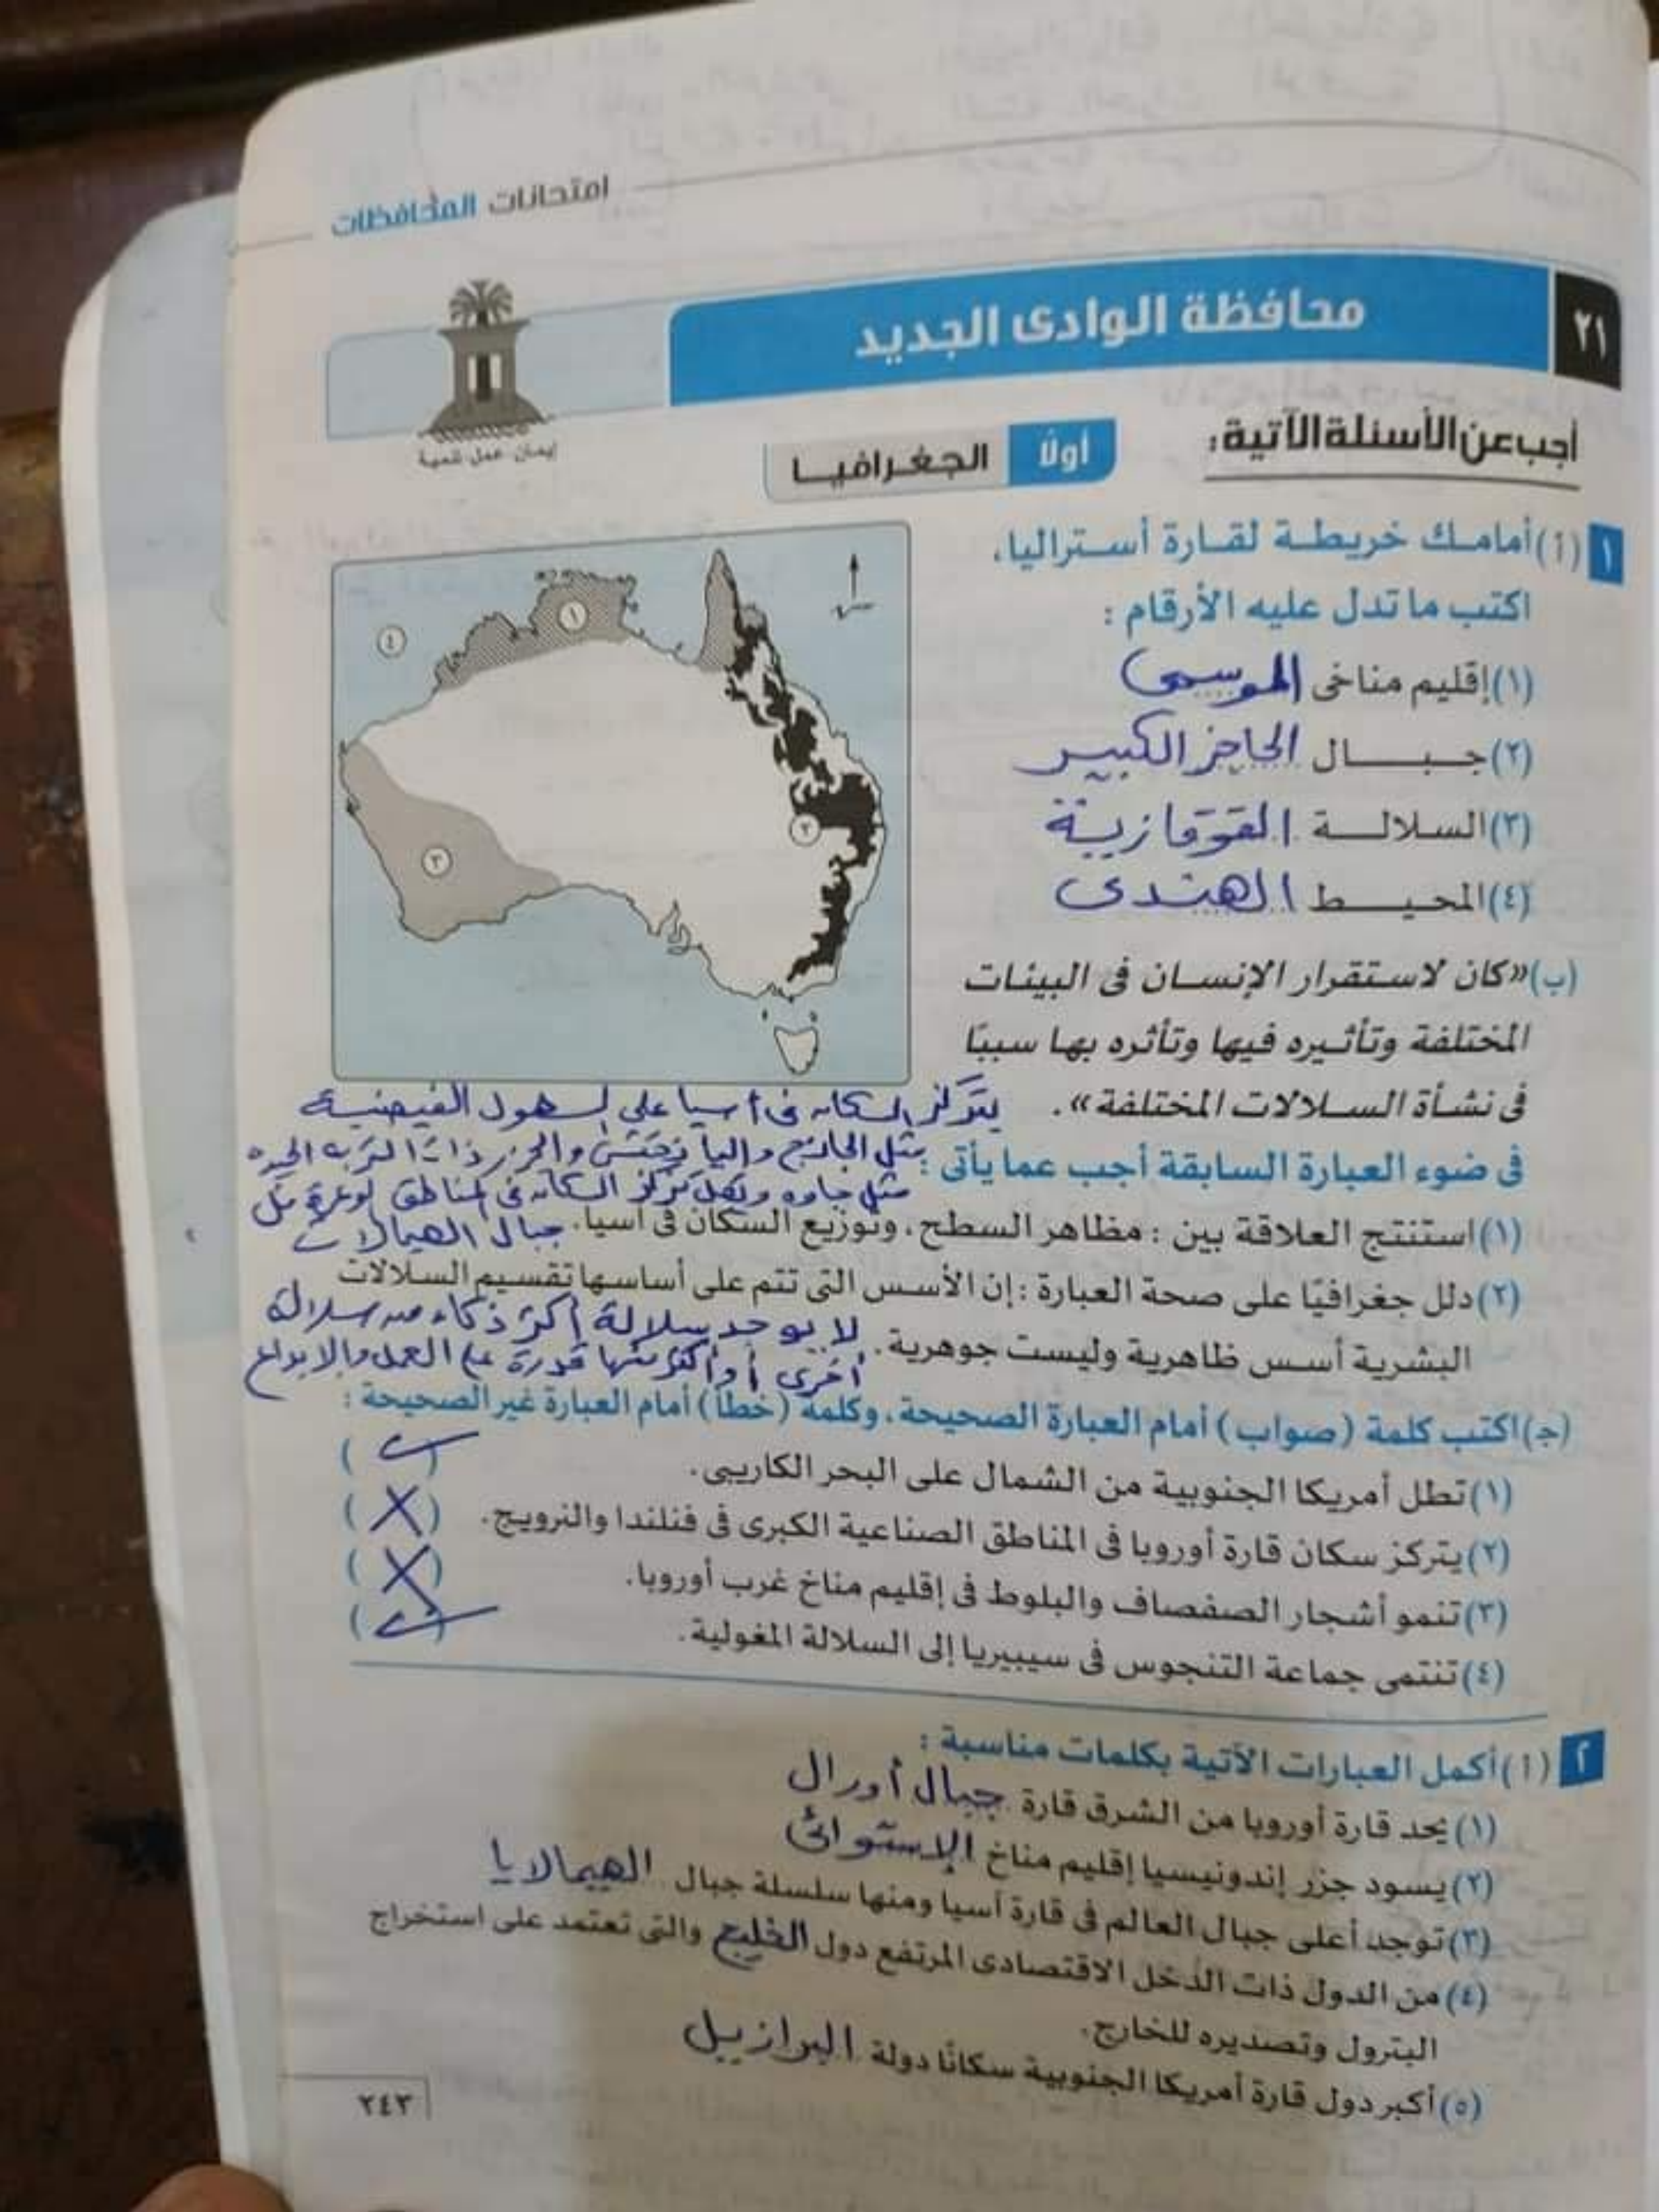 امتحانات المحافظات
٢١
محافظة الوادى الجديد
إيمان. عمل. تنمية
أجب عن الأسئلة الآتية:
أولًا الجغرافيا
١ (أ) أمامك خريطة لقارة أستراليا،
اكتب ما تدل عليه الأرقام :
(١) إقليم مناخى الموسمى
(٢) جبال الحاجز الكبير
(٣) السلالة القوقازية
(٤) المحيط الهندى
١
٢
٣
٤
(ب) «كان لاستقرار الإنسان فى البيئات
المختلفة وتأثيره فيها وتأثره بها سببًا
فى نشأة السلالات المختلفة».
يتركز السكان فى أسيا على السهول الفيضية
مثل الجانج واليانجتسى والجزر ذات التربة الجيدة
مثل جاوه ويقل تركز السكان فى المناطق الوعرة مثل
جبال الهيمالايا
فى ضوء العبارة السابقة أجب عما يأتى :
(١) استنتج العلاقة بين : مظاهر السطح، وتوزيع السكان فى آسيا.
(٢) دلل جغرافيًا على صحة العبارة : إن الأسس التى تتم على أساسها تقسيم السلالات
البشرية أسس ظاهرية وليست جوهرية.
لا يوجد سلالة أكثر ذكاء من سلالة
أخرى أو أكثر منها قدرة على العمل والابداع
(ج) اكتب كلمة (صواب) أمام العبارة الصحيحة، وكلمة (خطأ) أمام العبارة غير الصحيحة :
(١) تطل أمريكا الجنوبية من الشمال على البحر الكاريبى. (✓)
(٢) يتركز سكان قارة أوروبا فى المناطق الصناعية الكبرى فى فنلندا والنرويج. (X)
(٣) تنمو أشجار الصفصاف والبلوط فى إقليم مناخ غرب أوروبا. (X)
(٤) تنتمى جماعة التنجوس فى سيبيريا إلى السلالة المغولية. (✓)
٢ (أ) أكمل العبارات الآتية بكلمات مناسبة :
(١) يحد قارة أوروبا من الشرق قارة جبال أورال
(٢) يسود جزر إندونيسيا إقليم مناخ الإستوائى
(٣) توجد أعلى جبال العالم فى قارة آسيا ومنها سلسلة جبال الهيمالايا
(٤) من الدول ذات الدخل الاقتصادى المرتفع دول الخليج والتى تعتمد على استخراج
البترول وتصديره للخارج.
(٥) أكبر دول قارة أمريكا الجنوبية سكانًا دولة البرازيل
٢٤٣